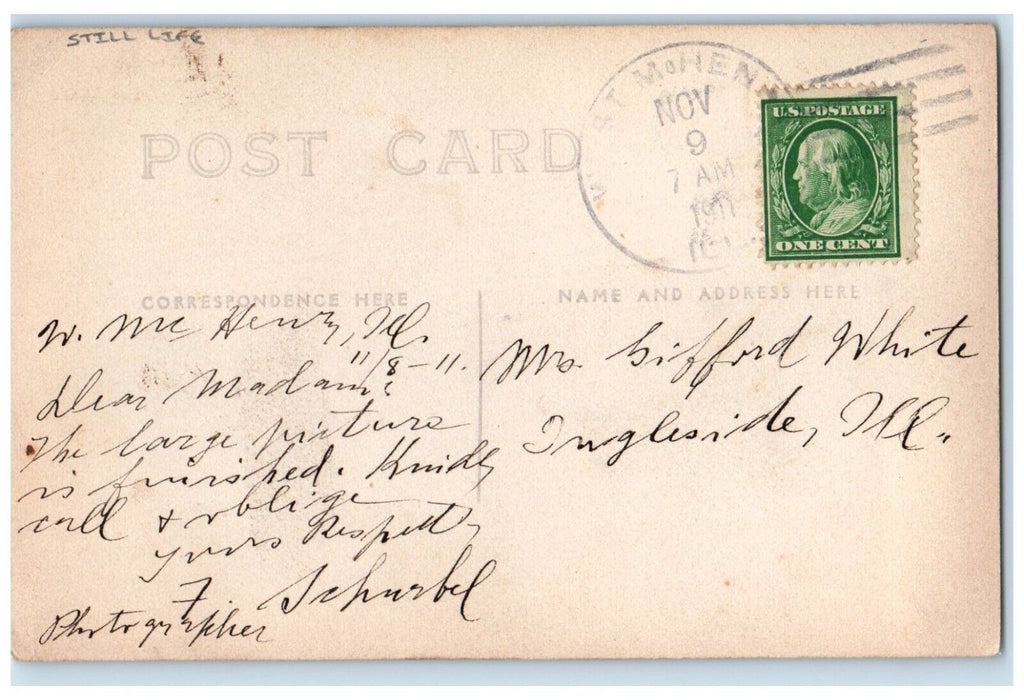 STILL LIFE
POST CARD
WEST McHENRY
NOV
9
7 AM
1911
ILL.
U.S. POSTAGE
ONE CENT
CORRESPONDENCE HERE
NAME AND ADDRESS HERE
W. Mc Henry, Ill.
11/8-11.
Dear Madam:
The large picture
is finished. Kindly
call & oblige
yours Respectly
F. Schurbel
Photographer
Mrs. Gifford White
Ingleside, Ill.